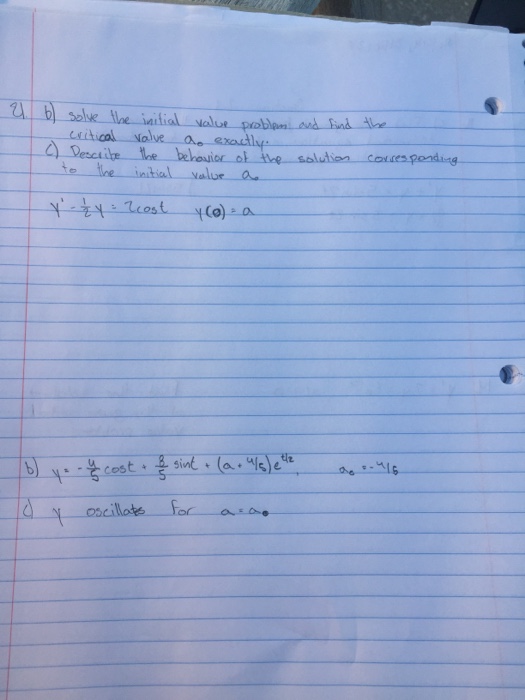 21 b) solve the initial value problem and find the
critical value a₀ exactly.
c) Describe the behavior of the solution corresponding
to the initial value a₀
y' - ½y = 2cost y(0) = a
b) y = -4/5 cost + 8/5 sint + (a + 4/5)e^t/2, a₀ = -4/5
c) y oscillates for a = a₀